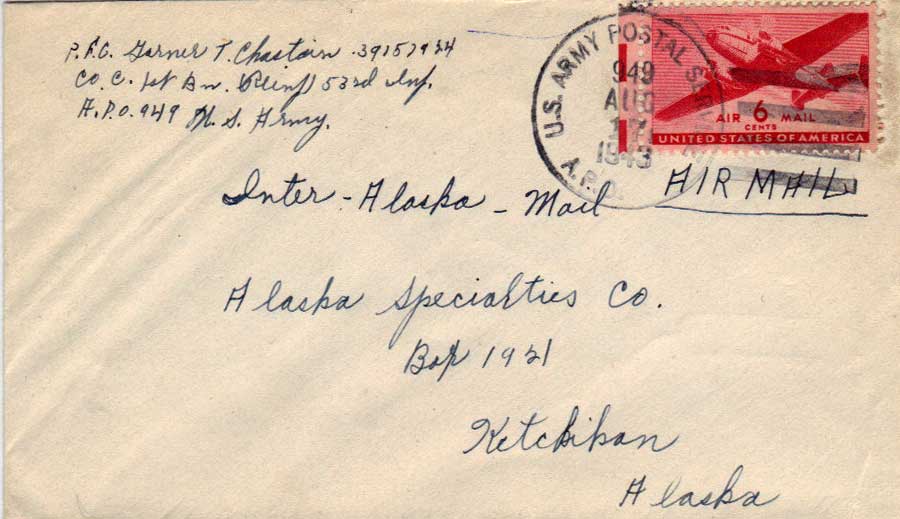 P.F.C. Garner T. Chastain 39157934
Co. C. 1st Bn. (Reinf) 53rd Inf.
A.P.O. 949 U. S. Army.
U.S. ARMY POSTAL SER
949
AUG
17
1943
A.P.O.
AIR 6 MAIL
CENTS
UNITED STATES OF AMERICA
AIR MAIL
Inter-Alaska-Mail
Alaska Specialties Co.
Box 1921
Ketchikan
Alaska